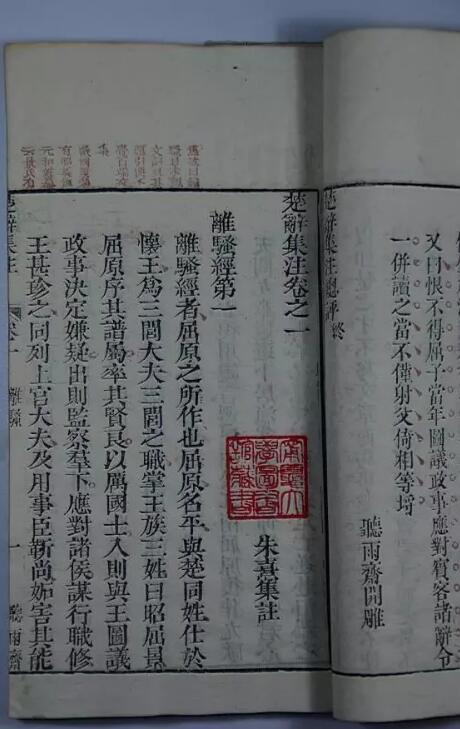 又曰恨不得屈子當年圖議政事應對賓客諸辭令
一併讀之當不僅射父倚相等埒
聽雨齋開雕
楚辭集注總評終
楚辭集注卷之一
朱熹集註
離騷經第一
離騷經者屈原之所作也屈原名平與楚同姓仕於
懷王爲三閭大夫三閭之職掌王族三姓曰昭屈景
屈原序其譜屬率其賢良以厲國士入則與王圖議
政事決定嫌疑出則監察羣下應對諸侯謀行職修
王甚珍之同列上官大夫及用事臣靳尚妬害其能
楚辭集注 卷一 離騷 一 聽雨齋